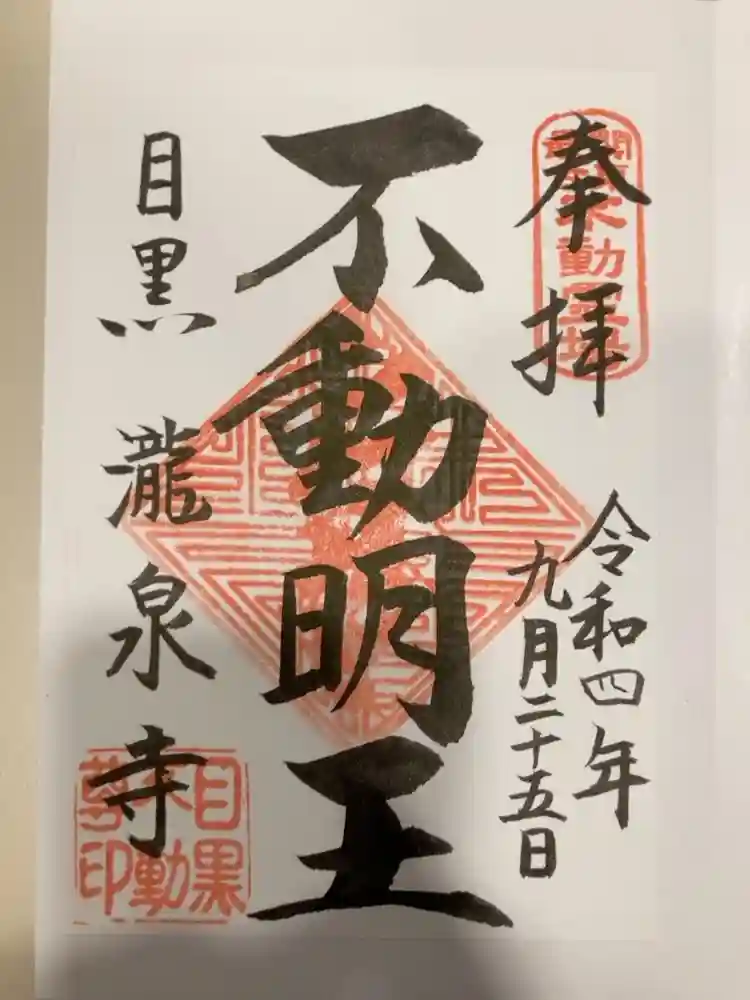 奉拝
令和四年
九月二十五日
不動明王
目黒 瀧泉寺
目黒
不動
尊印